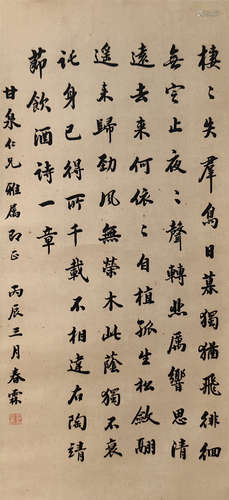 棲〻失群鳥日暮獨猶飛徘徊
無定止夜〻聲轉悲厲響思清
遠去來何依〻自植孤生松斂翮
遙來歸勁風無榮木此蔭獨不衰
託身已得所千載不相違右陶靖
節飲酒詩一章
甘泉仁兄雅屬即正 丙辰三月春霖